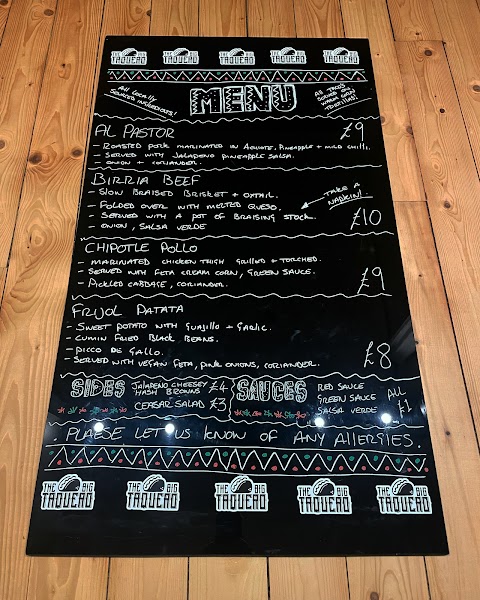 THE BIG TAQUERO THE BIG TAQUERO THE BIG TAQUERO THE BIG TAQUERO THE BIG TAQUERO
All locally sourced ingredients!
MENU
All tacos served on warm corn tortillas!
AL PASTOR £9
- ROASTED PORK MARINATED IN ACHIOTE, PINEAPPLE + MILD CHILLI.
- SERVED WITH JALAPENO PINEAPPLE SALSA.
- ONION + CORIANDER.
BIRRIA BEEF
- SLOW BRAISED BRISKET + OXTAIL.
- FOLDED OVER WITH MELTED QUESO.
TAKE A NAPKIN!
- SERVED WITH A POT OF BRAISING STOCK.
- ONION, SALSA VERDE £10
CHIPOTLE POLLO
- MARINATED CHICKEN THIGH GRILLED + TORCHED.
- SERVED WITH FETA CREAM CORN, GREEN SAUCE.
- PICKLED CABBAGE, CORIANDER. £9
FRIJOL PATATA
- SWEET POTATO WITH GUAJILLO + GARLIC.
- CUMIN FRIED BLACK BEANS.
- PICCO DE GALLO.
- SERVED WITH VEGAN FETA, PINK ONIONS, CORIANDER. £8
SIDES
JALAPENO CHEESEY HASH BROWNS £4
CEASAR SALAD £3
SAUCES
RED SAUCE
GREEN SAUCE
SALSA VERDE
ALL £1
PLAESE LET US KNOW OF ANY ALLERGIES.
THE BIG TAQUERO THE BIG TAQUERO THE BIG TAQUERO THE BIG TAQUERO THE BIG TAQUERO